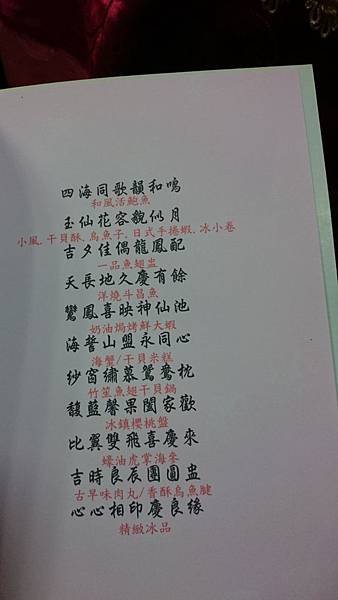 四海同歌韻和鳴
和風活鮑魚
玉仙花容貌似月
小風.干貝酥.烏魚子.日式手捲蝦.冰小卷
吉夕佳偶龍鳳配
一品魚翅盅
天長地久慶有餘
洋燒斗昌魚
鸞鳳喜映神仙池
奶油焗烤鮮大蝦
海誓山盟永同心
海蟹/干貝米糕
紗窗繡慕鴛鴦枕
竹笙魚翅干貝鍋
馥藍馨果闔家歡
冰鎮櫻桃盤
比翼雙飛喜慶來
蠔油虎掌海參
吉時良辰團圓盅
古早味肉丸/香酥烏魚腱
心心相印慶良緣
精緻冰品